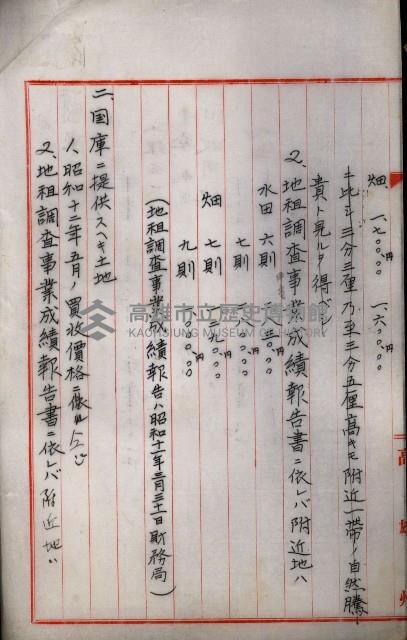 畑 一七〇〇、〇〇円 一六〇〇、〇〇円
ニ比シ三分三厘乃至三分五厘高キモ附近一帯ノ自然騰
貴ト見ルヲ得ベ
2、地租調査事業成績報告書ニ依レバ附近地ハ
水田 六則
七則
畑 七則
九則
(地租調査事業成績報告ハ昭和十一年三月三十一日財務局)
二、国庫ニ提供スベキ土地
1、昭和十二年五月ノ買收價格ニ依ル
2、地租調査事業成績報告書ニ依レバ附近地ハ
高雄州
高雄市立歷史博物館
KAOHSIUNG MUSEUM OF HISTORY